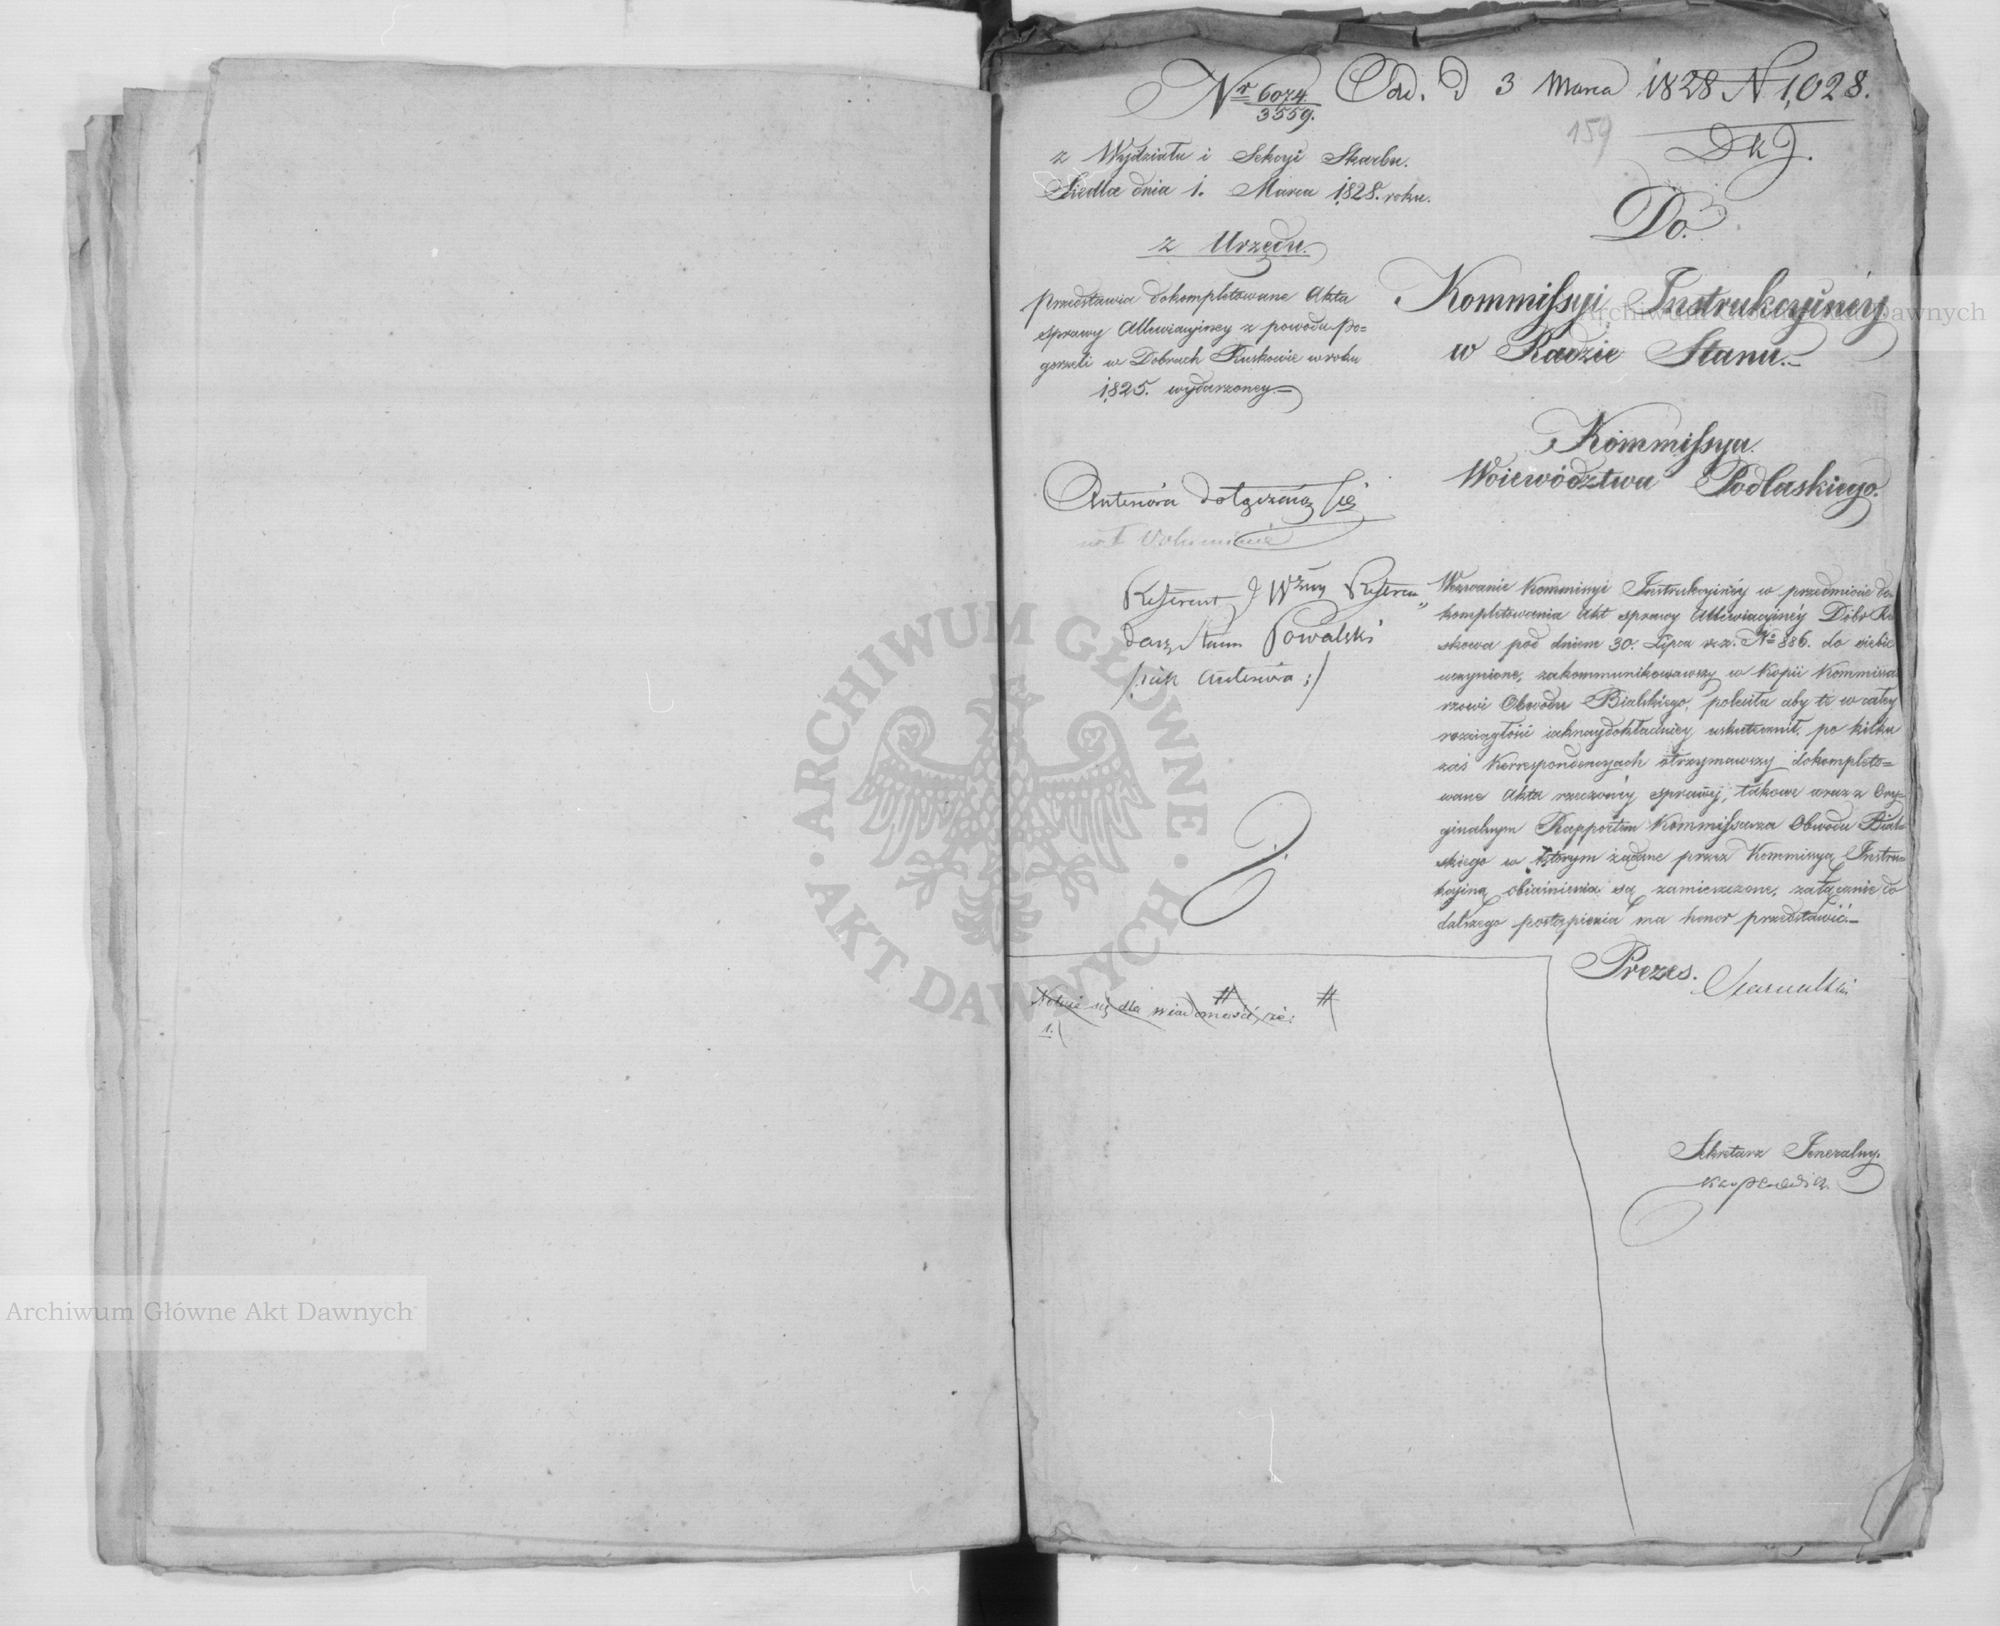 Nr 6074/3559. Odd. D 3 Marca 1828 N 1,028.
159
z Wydziału i Sekcyi Skarbu.
Siedlce dnia 1. Marca 1828. roku.
Do.
z Urzędu.
Przedstawia dokompletowane Akta
sprawy Allewiacyiney z powodu po=
gorzeli w Dobrach Ruskowie w roku
1825. wydarzoney.—
Kommissyi Instrukcyinéy
w Radzie Stanu.—
Kommissya
Woiewództwa Podlaskiego.
Anteriora dołączaią się
w 1 Voluminie
Referent J Wżny Referen„
darz Stanu Kowalski
/: iak Anteriora :/
Wezwanie Kommissyi Instrukcyinéy w przedmiocie do=
kompletowania Akt sprawy Allewiacyinéy Dóbr Ru
skowa pod dniem 30. Lipca r.z. No 886. do siebie
uczynione, zakommunikowawszy w Kopii Kommissa
rzowi Obwodu Bialskiego, poleciła aby te w całey
rozciągłości iaknaydokładniey uskutecznił, po kilku
zaś Korrespondencyach otrzymawszy dokompleto=
wane Akta rzeczonéy sprawy, takowe wraz z Ory=
ginalnym Rapportem Kommissarza Obwodu Bial=
skiego w którym żądane przez Kommissyą Instru=
kcyiną obiaśnienia są zamieszczone, załącznie do
dalszego postąpienia ma honor przedstawić.—
Prezes.
Notuie się dla wiadomości, że:
1.
Sekretarz Jeneralny.
Archiwum Główne Akt Dawnych
Archiwum Główne Akt Dawnych
ARCHIWUM GŁÓWNE AKT DAWNYCH